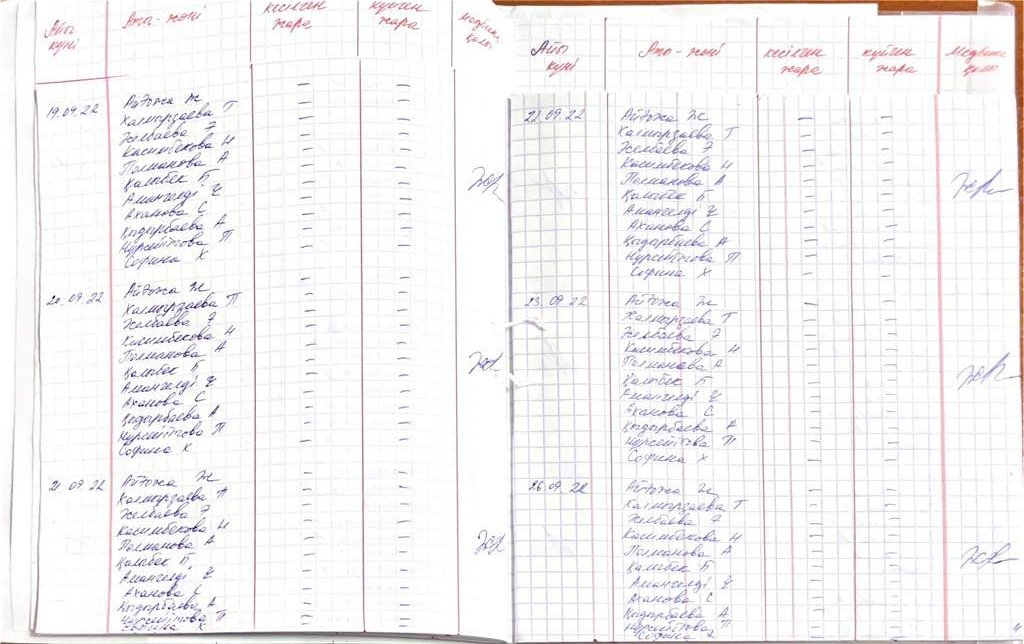 Айы күні Аты-жөні кесілген жара күйген жара медбике қолы
19.09.22 Айдожа Ж — —
Халмырзаева Т — —
Желбаева Э — —
Касимбекова Н — —
Полманова А — —
Қалыбек Б — —
Амангелді Ұ — —
Аханова С — —
Қыдырбаева А — —
Нурсейітова П — —
Софина Х — —
20.09.22 Айдожа Ж — —
Халмырзаева П — —
Желбаева Э — —
Касимбекова Н — —
Полманова А — —
Қалыбек Б — —
Амангелді Ұ — —
Аханова С — —
Қыдырбаева А — —
Нурсейітова П — —
Софина Х — —
21.09.22 Айдожа Ж — —
Халмырзаева П — —
Желбаева Э — —
Касимбекова Н — —
Полманова А — —
Қалыбек Б — —
Амангелді Ұ — —
Аханова С — —
Қыдырбаева А — —
Нурсейітова П — —
Софина Х — —
Айы күні Аты-жөні кесілген жара күйген жара медбике қолы
22.09.22 Айдожа Ж — —
Халмырзаева Т — —
Желбаева Э — —
Касимбекова Н — —
Полманова А — —
Қалыбек Б — —
Амангелді Ұ — —
Аханова С — —
Қыдырбаева А — —
Нурсейітова П — —
Софина Х — —
23.09.22 Айдожа Ж — —
Халмырзаева Т — —
Желбаева Э — —
Касимбекова Н — —
Полманова А — —
Қалыбек Б — —
Амангелді Ұ — —
Аханова С — —
Қыдырбаева А — —
Нурсейітова П — —
Софина Х — —
26.09.22 Айдожа Ж — —
Халмырзаева Т — —
Желбаева Э — —
Касимбекова Н — —
Полманова А — —
Қалыбек Б — —
Амангелді Ұ — —
Аханова С — —
Қыдырбаева А — —
Нурсейітова П — —
Софина Х — —